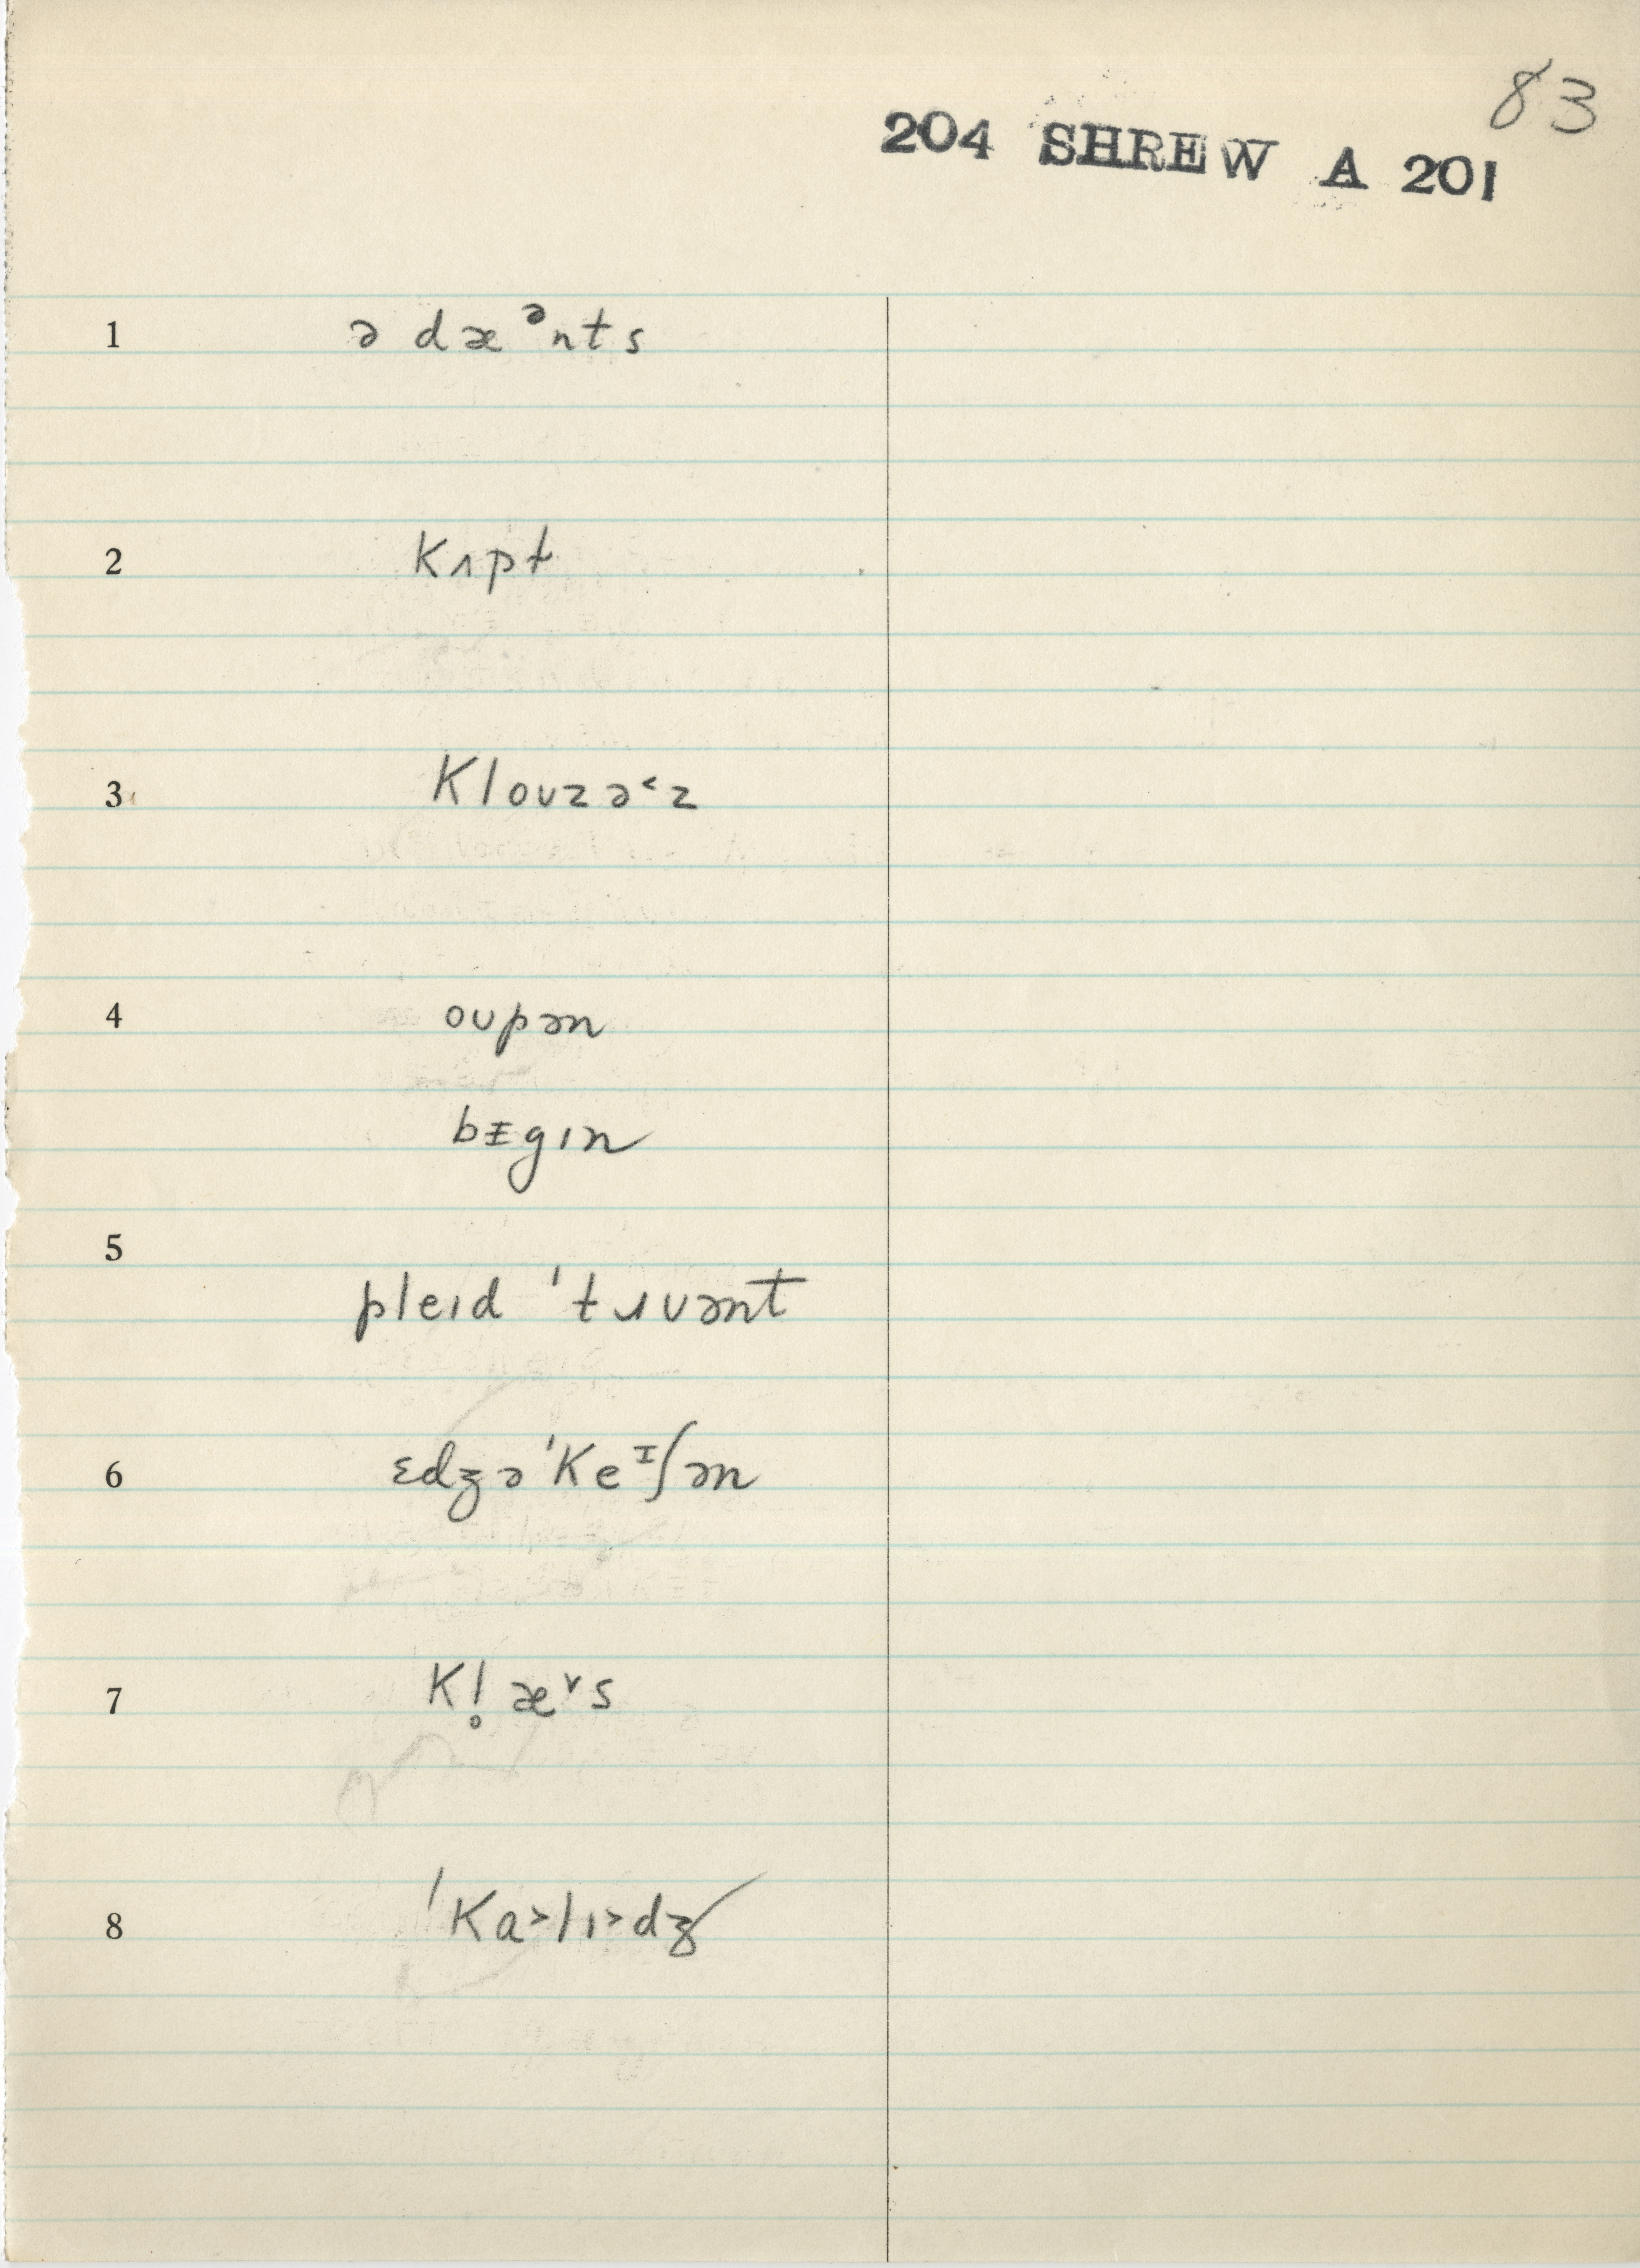 83
204 SHREW A 201
1 ə dæᵊnts
2 kʌpt
3 Kloʊzə˂z
4 oʊpən
bᵻgɪn
5 pleɪd 'tɹʊənt
6 ɛdʒə'keᴵʃən
7 kl̥æ˅s
8 'ka˃lɪ˃dʒ